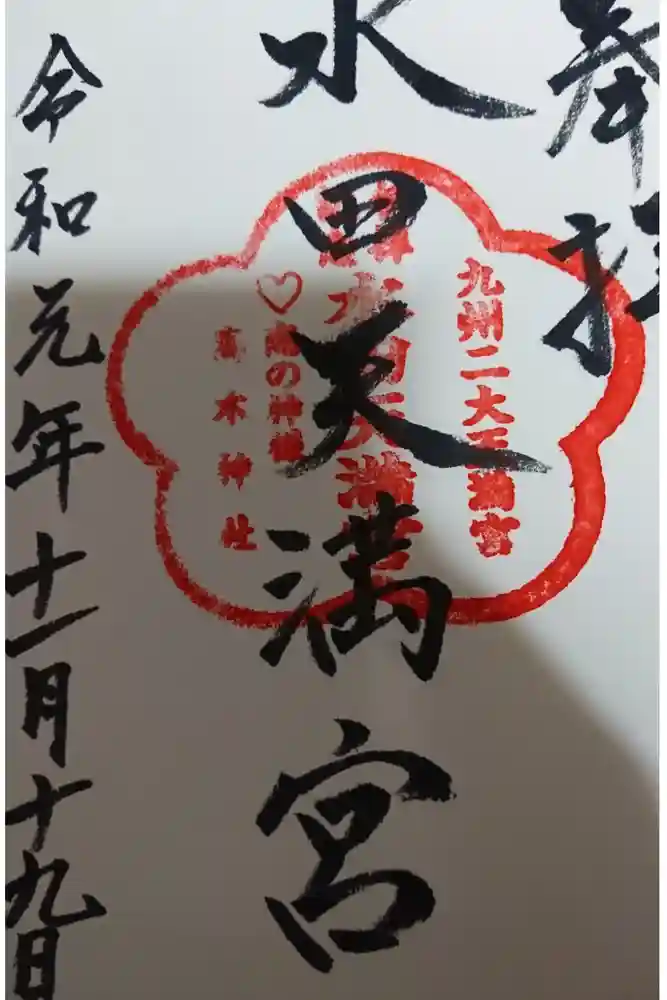 奉拝
水田天満宮
令和元年十一月十九日
九州二大天満宮
水田天満宮
♡恋の神様
恋木神社